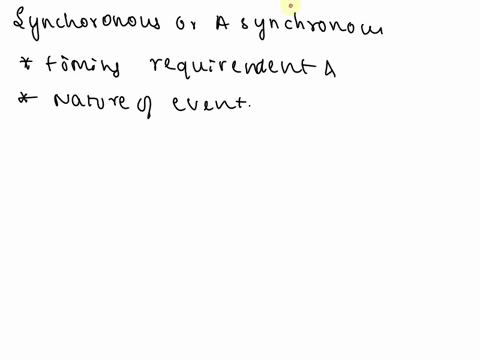 Synchoronous or Asynchronous
* timing requirement A
* Nature of event.